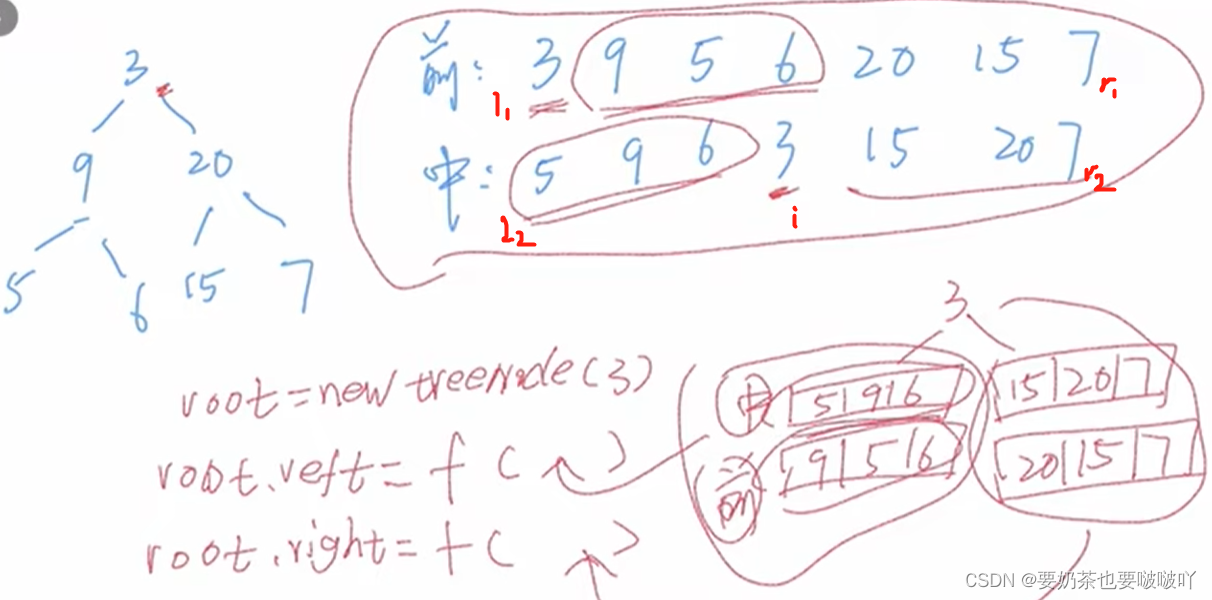 3
9 20
5 6 15 7
前: 3 9 5 6 20 15 7
l₁ r₁
中: 5 9 6 3 15 20 7
l₂ i r₂
root=new treenode(3)
root.veft= f( )
root.right= f( )
3
中 5|9|6 15|20|7
前 9|5|6 20|15|7
CSDN @要奶茶也要啵啵吖